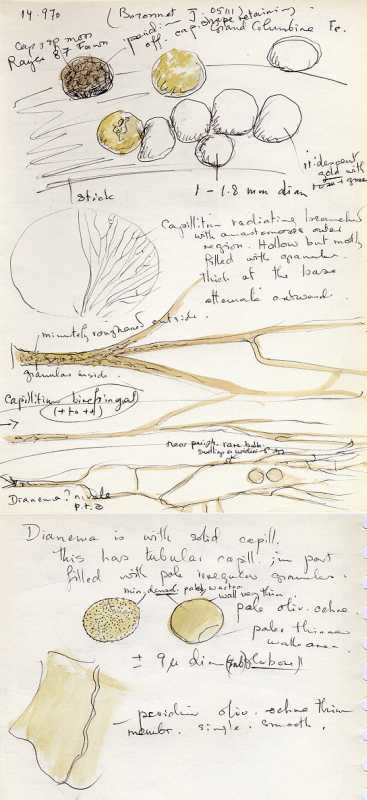 14.970
peridi-
Cap + sp mass
off. cap. shape retaining
Fe.
Rayner 87 Fawn
iridescent
gold with
1 - 1.8 mm diam
stick
Capillitium radiating branched
with anastomoses outer
region. Hollow but mostly
filled with granules.
Thick at the base
attenuate outward.
minutely roughened outside.
granular inside.
Capillitium birefringent
(+ to ++)
near periph. rare
Dianema? nivale
p.t.o
Dianema is with solid capill.
This has tubular capill. in part
filled with pale irregular granules.
min. pale
wall very thin.
pale oliv. ochre
paler thinner
wall area.
± 9µ diam (subglobose)
peridium oliv. ochre thin
membr. single. smooth.